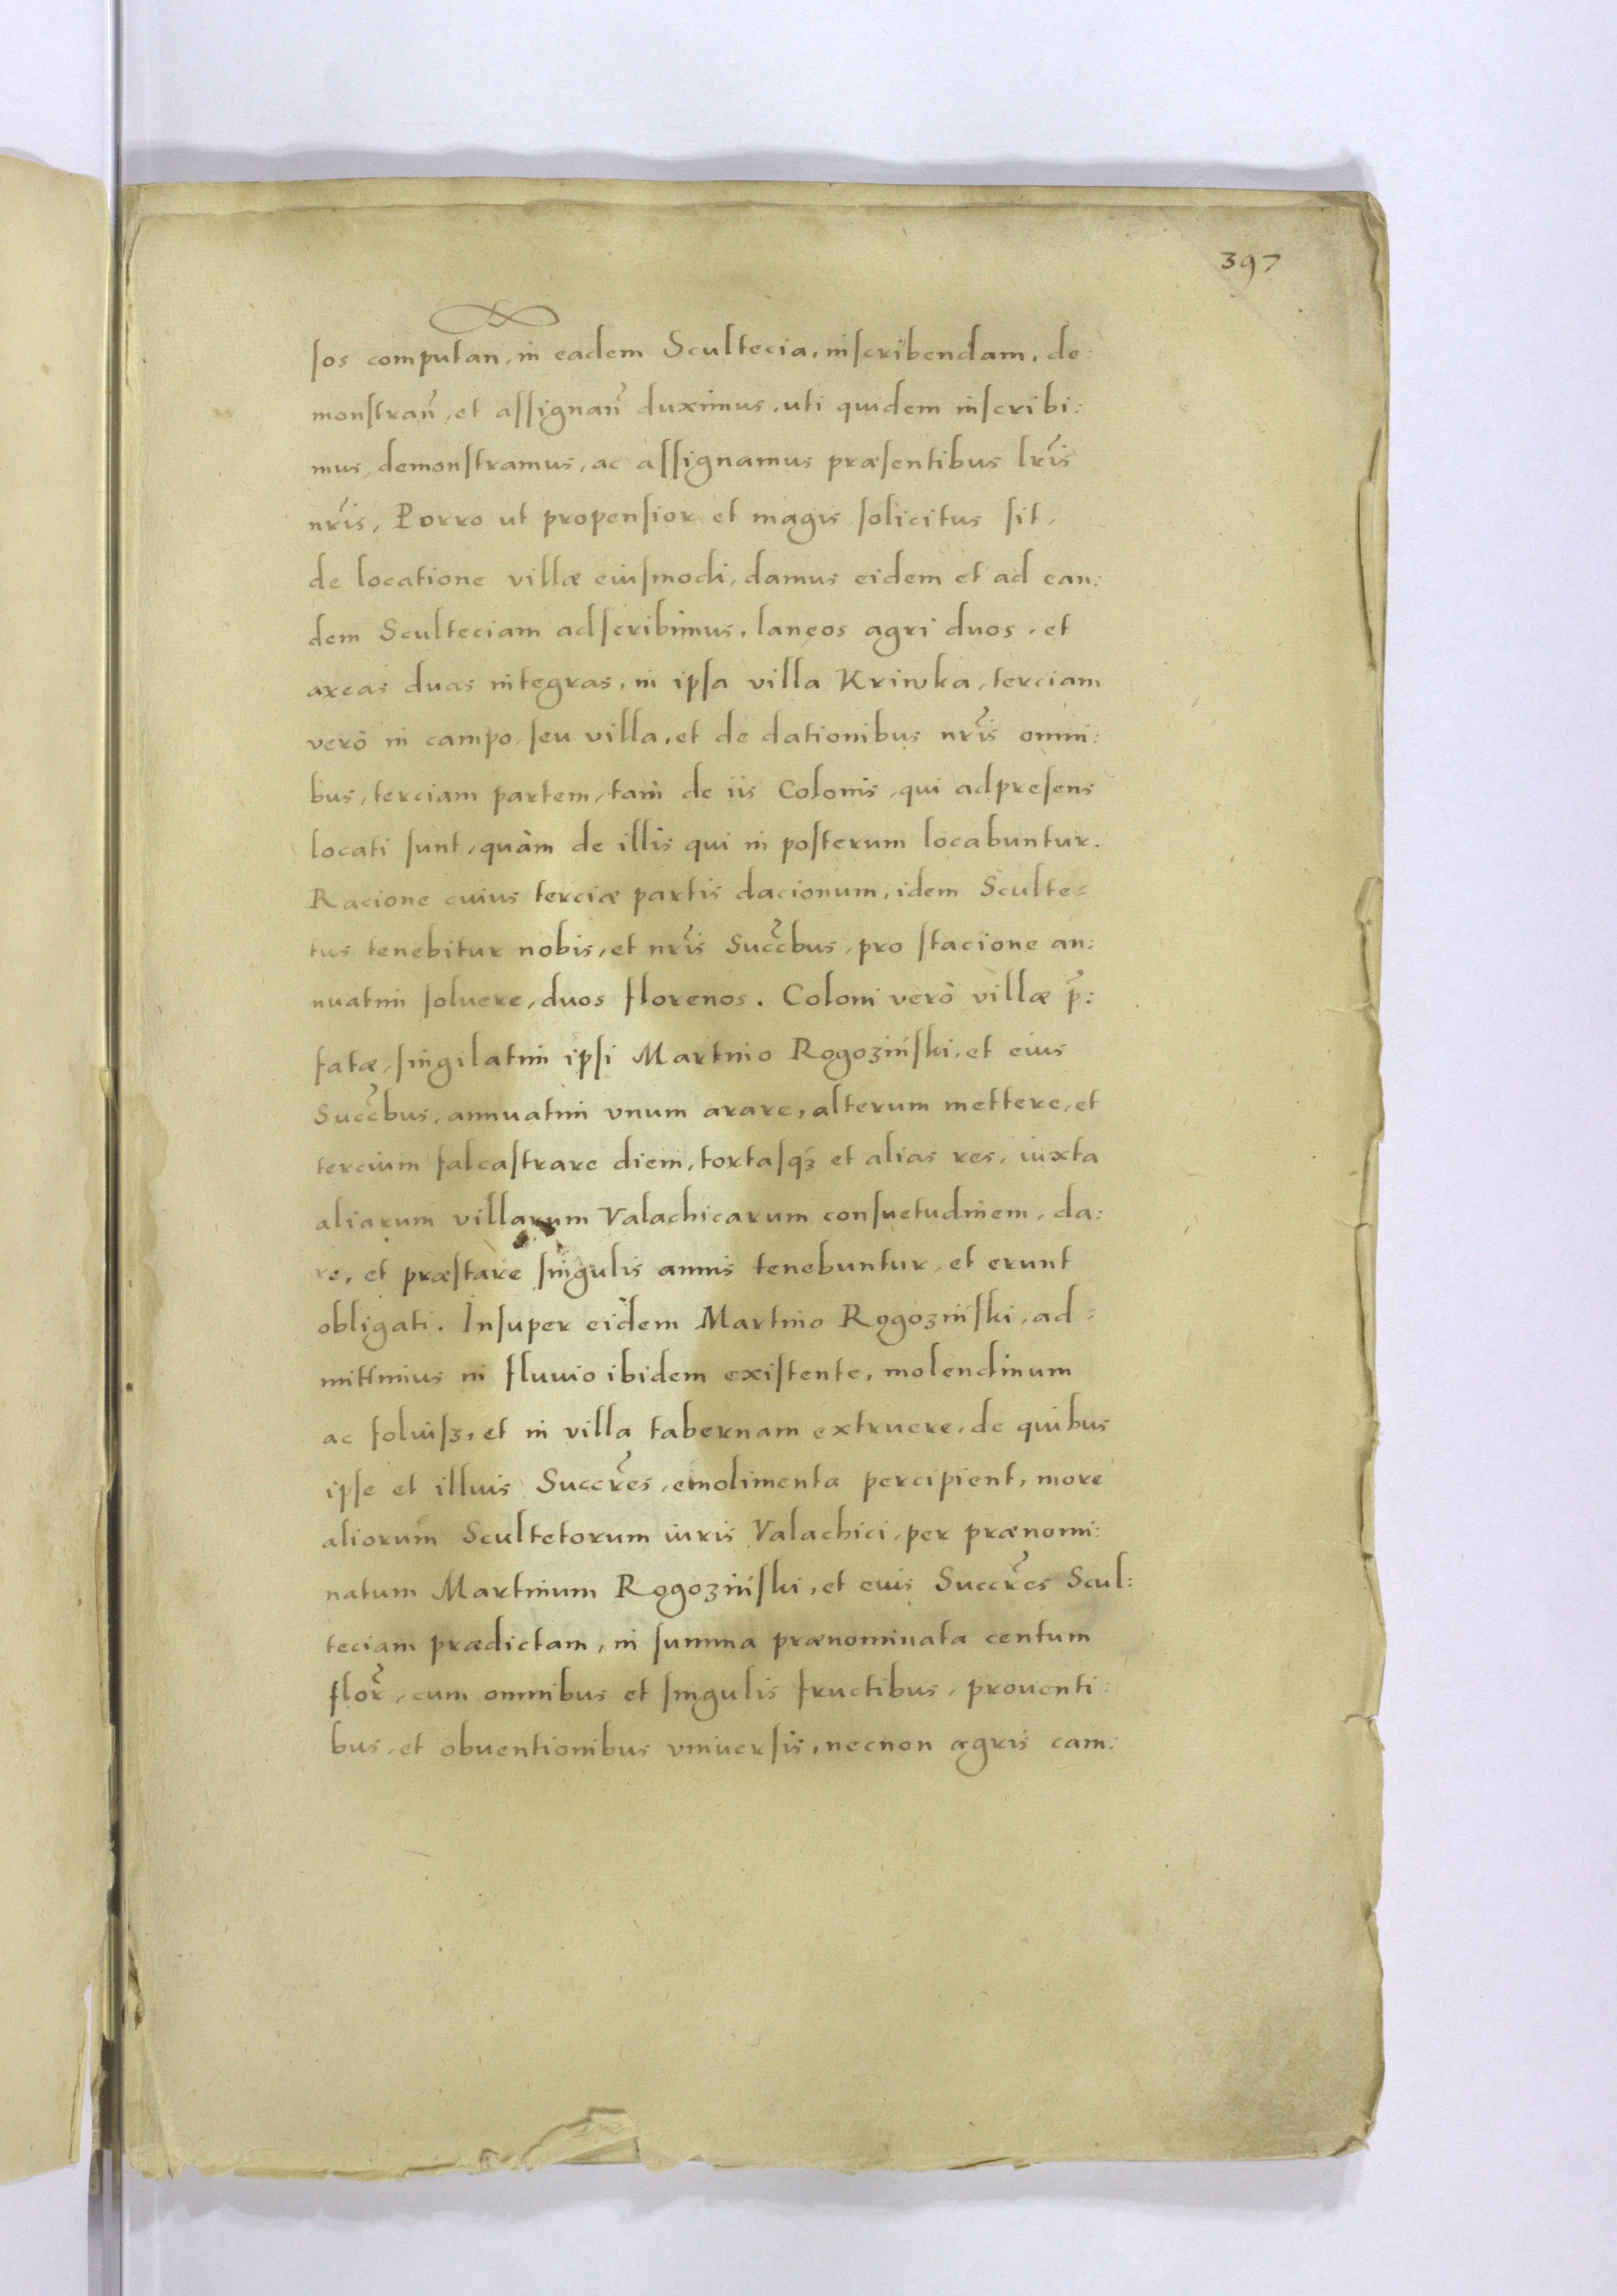 397
ſos computan, in eadem Scultecia, inſcribendam, de:
monſtran̄, et aſſignan̄ duximus, uti quidem inſcribi:
mus, demonſtramus, ac aſſignamus præſentibus lr̄is
nr̄is, Porro ut propenſior et magis ſolicitus ſit,
de locatione villæ eiuſmodi, damus eidem et ad ean:
dem Sculteciam adſcribimus, laneos agri duos, et
areas duas integras, in ipſa villa Kriwka, terciam
verò in campo, ſeu villa, et de dationibus nr̄is omni:
bus, terciam partem, tam de iis Colonis, qui adpreſens
locati ſunt, quàm de illis qui in poſterum locabuntur.
Racione cuius terciæ partis dacionum, idem Sculte=
tus tenebitur nobis, et nr̄is Succ̄bus, pro ſtacione an:
nuatim ſoluere, duos florenos. Coloni verò villæ p̄:
fatæ, ſingilatim ipſi Martino Rogozińſki, et eius
Succ̄bus, annuatim vnum arare, alterum mettere, et
tercium falcaſtrare diem, tortaſqꝫ et alias res, iuxta
aliarum villarum Valachicarum conſuetudinem, da:
re, et præſtare ſingulis annis tenebuntur, et erunt
obligati. Inſuper eidem Martino Rogozińſki, ad=
mittimus in fluuio ibidem exiſtente, molendinum
ac foluiſꝫ, et in villa tabernam extruere, de quibus
ipſe et illius Succr̄es, emolimenta percipient, more
aliorum Scultetorum iuris Valachici, per prænomi:
natum Martinum Rogozińſki, et eius Succr̄es Scul:
teciam prædictam, in ſumma prænominata centum
flor̄, cum omnibus et ſingulis fructibus, prouenti:
bus, et obuentionibus vniuerſis, necnon agris cam: